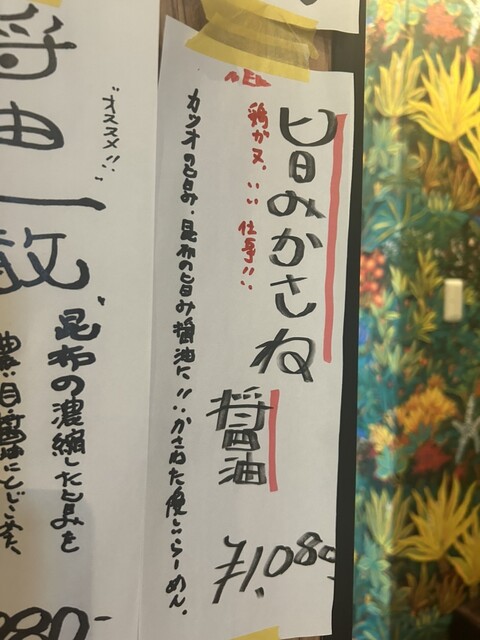 NEW
旨みかさね
醤油
¥1,080
鶏が又、いい仕事!!
カツオの旨み、昆布の旨み醤油に!!かさねた優しいらーめん。
醤油一献
"オススメ!!"
昆布の濃縮したとよみを
醤油にとじこめた
080-